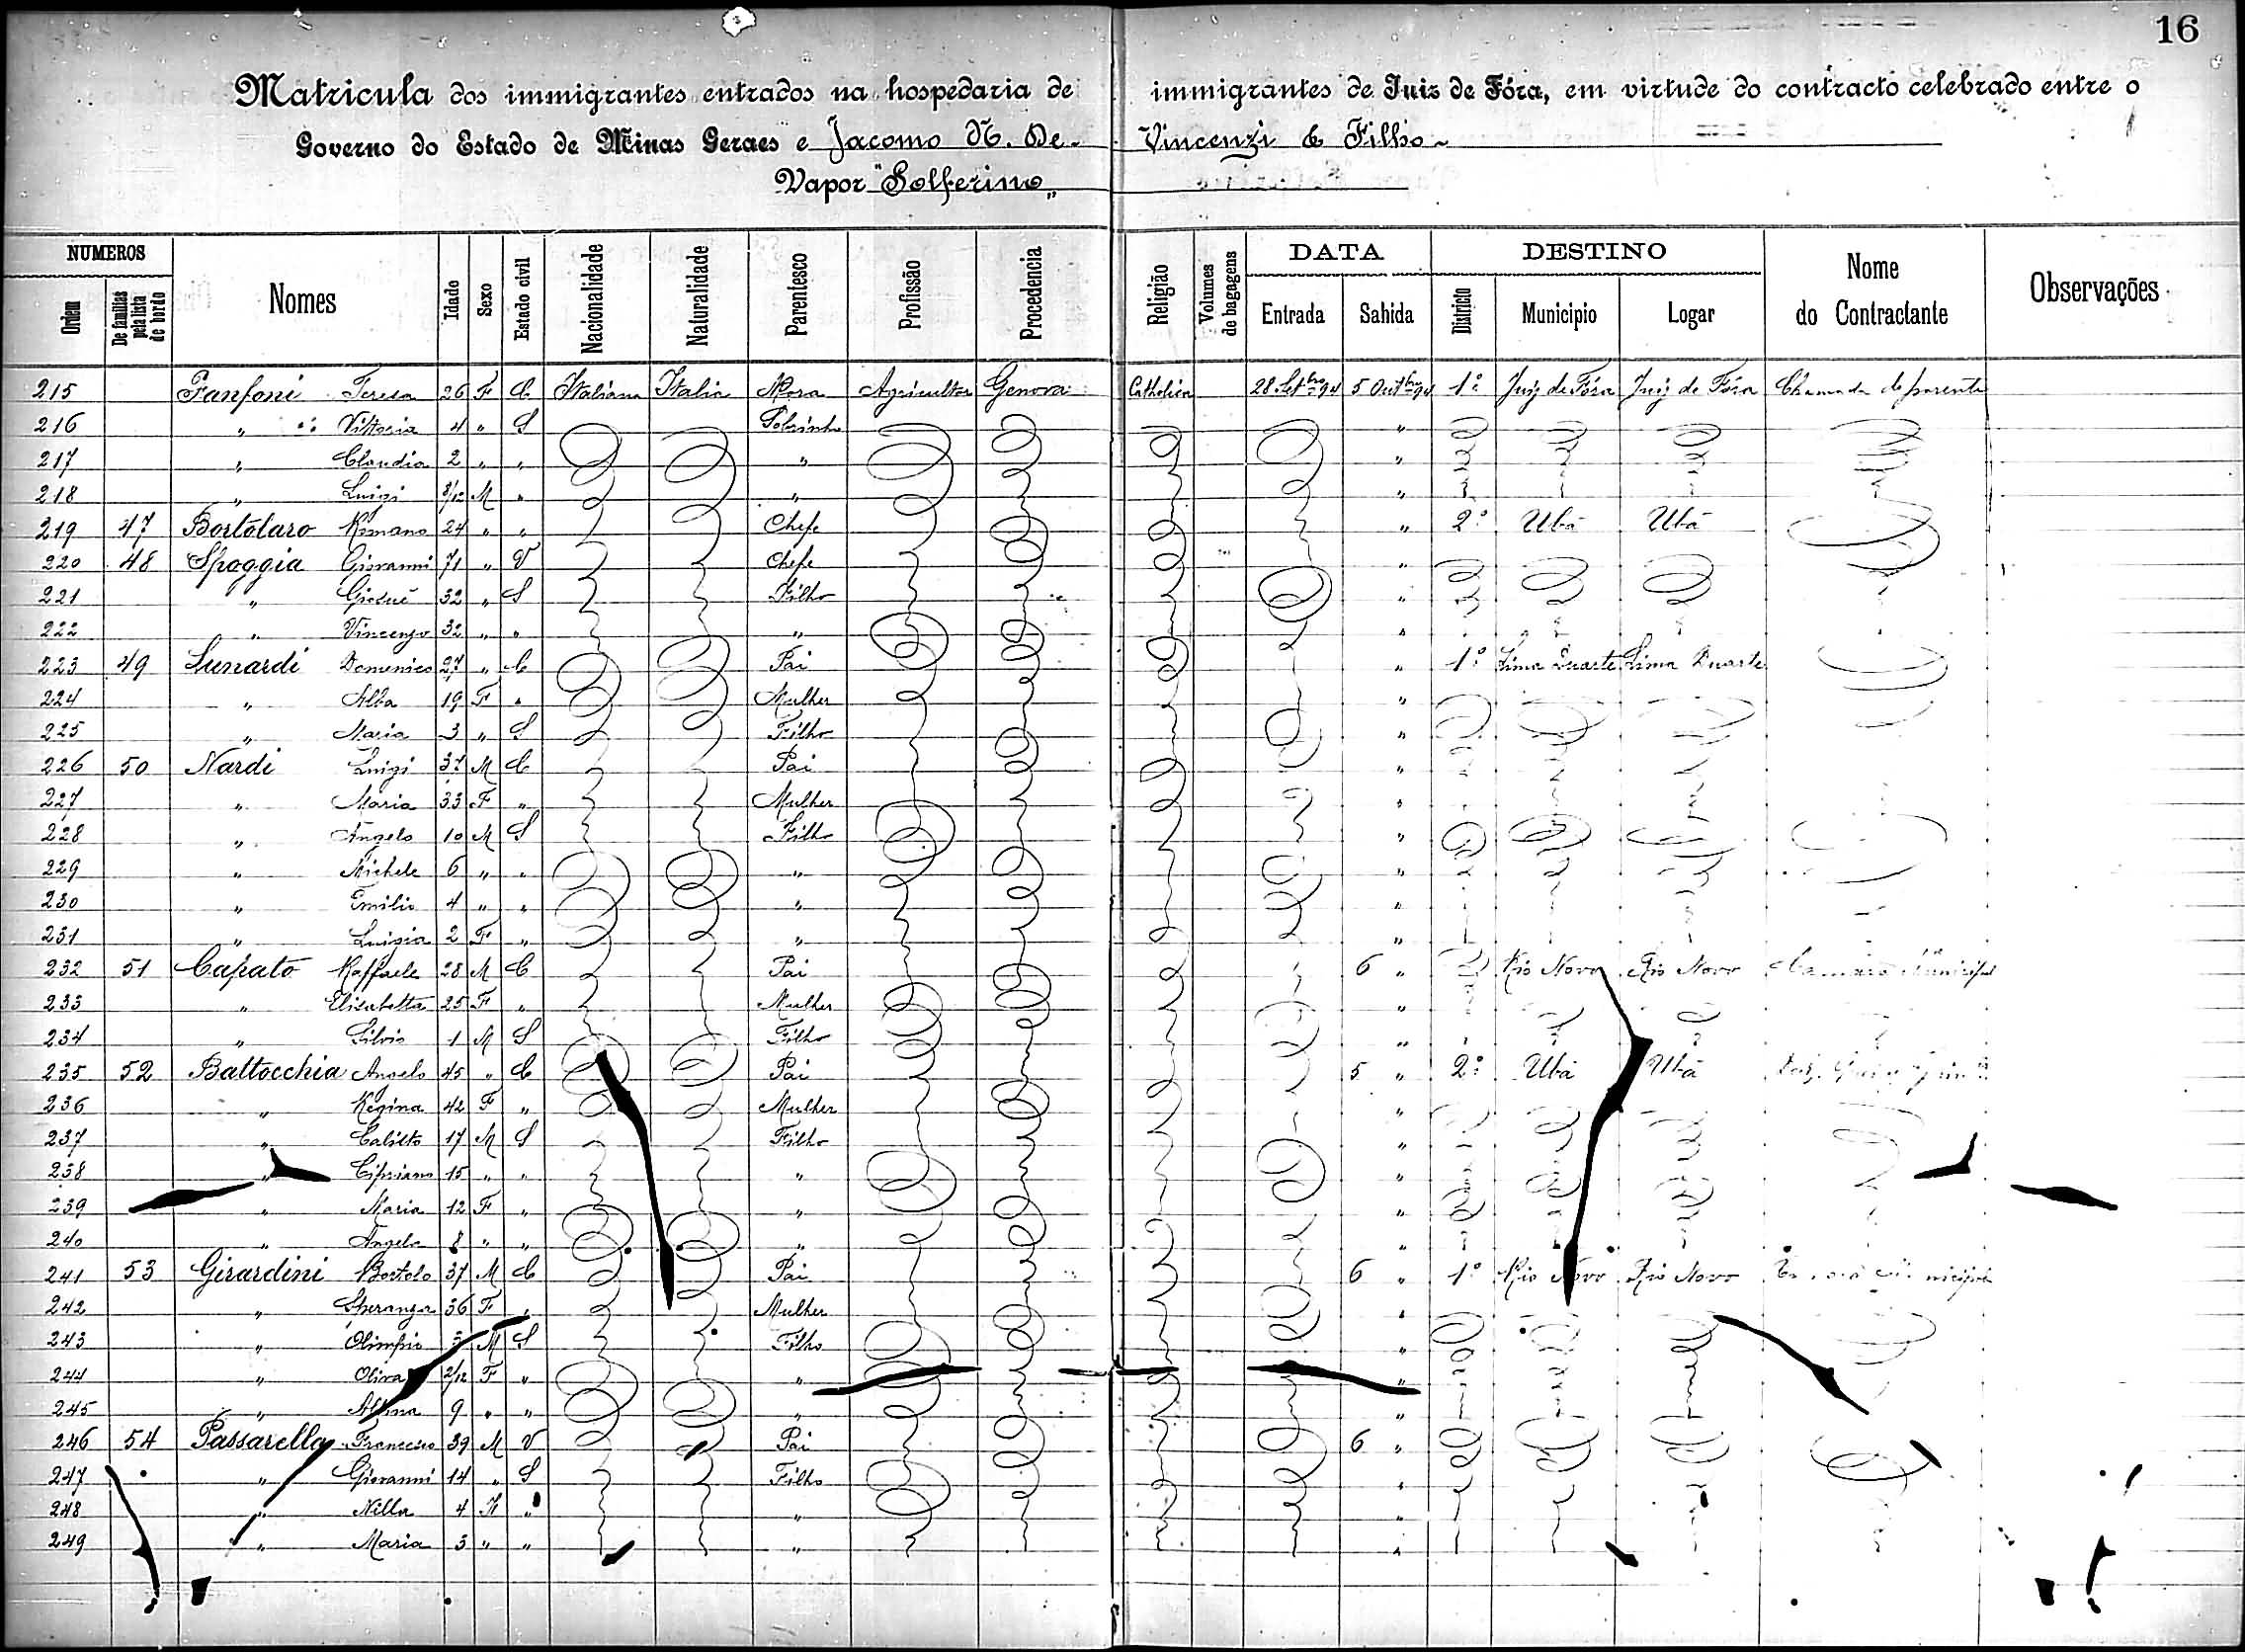 16
Matricula dos immigrantes entrados na hospedaria de immigrantes de Juiz de Fóra, em virtude do contracto celebrado entre o
Governo do Estado de Minas Geraes e Jacomo N. De-Vincenzi & Filho
Vapor "Solferino"
NUMEROS DATA DESTINO
Ordem De familias pela lista de bordo Nomes Idade Sexo Estado civil Nacionalidade Naturalidade Parentesco Profissão Procedencia Religião Volumes de bagagens Entrada Sahida Districto Municipio Logar Nome do Contractante Observações
215 Fanfoni Teresa 26 F C Italiana Italia Nora Agricultor Genova Catholica 28 Setbro 94 5 Outbro 94 1º Juiz de Fóra Juiz de Fóra Chamada de parente
216 " Vittoria 4 " S Sobrinha "
217 " Claudia 2 " " " "
218 " Luigi 8/12 M " " "
219 47 Bortolaro Romano 24 " " Chefe " 2º Ubá Ubá
220 48 Spoggia Giovanni 71 " V Chefe "
221 " Giosué 32 " S Filho "
222 " Vincenzo 32 " " " "
223 49 Lunardi Domenico 27 " C Pai " 1º Lima Duarte Lima Duarte
224 " Alba 19 F " Mulher "
225 " Maria 3 " S Filho "
226 50 Nardi Luigi 37 M C Pai "
227 " Maria 33 F " Mulher "
228 " Angelo 10 M S Filho "
229 " Michele 6 " " " "
230 " Emilio 4 " " " "
231 " Luigia 2 F " " "
232 51 Capato Raffaele 28 M C Pai 6 " Rio Novo Rio Novo Camara Municipal
233 " Elisabetta 25 F " Mulher "
234 " Silvio 1 M S Filho "
235 52 Battocchia Angelo 45 " C Pai 5 " 2º Ubá Ubá
236 " Regina 42 F " Mulher "
237 " Calisto 17 M S Filho "
238 " Cipriano 15 " " " "
239 " Maria 12 F " " "
240 " Angela 8 " " " "
241 53 Girardini Bortolo 37 M C Pai 6 " 1º Rio Novo Rio Novo
242 " Speranza 36 F " Mulher "
243 " Olimpio M S Filho "
244 " Oliva 2/12 F " " "
245 " 9 " " " "
246 54 Passarella Francesco 39 M V Pai 6 "
247 " Giovanni 14 " S Filho "
248 " Nilla 4 F " " "
249 " Maria 3 " " " "